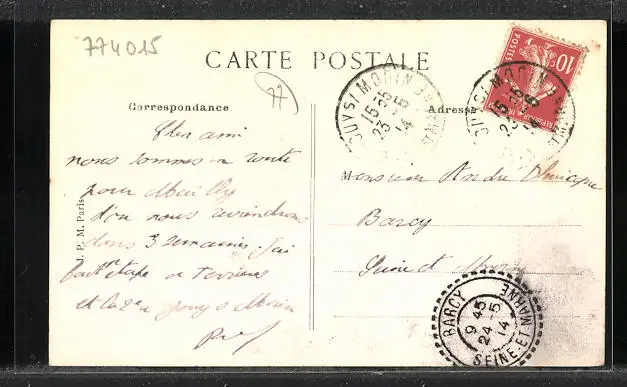 774015
CARTE POSTALE
77
Correspondance
Adresse
JOUY S/ MORIN
15 35
23 -5
14
POSTES 10
Cher ami
nous sommes en route
pour Mailly
d'où nous reviendrons
dans 3 semaines. J'ai
fait étape
et Jouy s Morin
J. P. M. Paris
Monsieur André
Barcy
Seine et Marne
BARCY
9 45
24 -5
14
SEINE-ET-MARNE